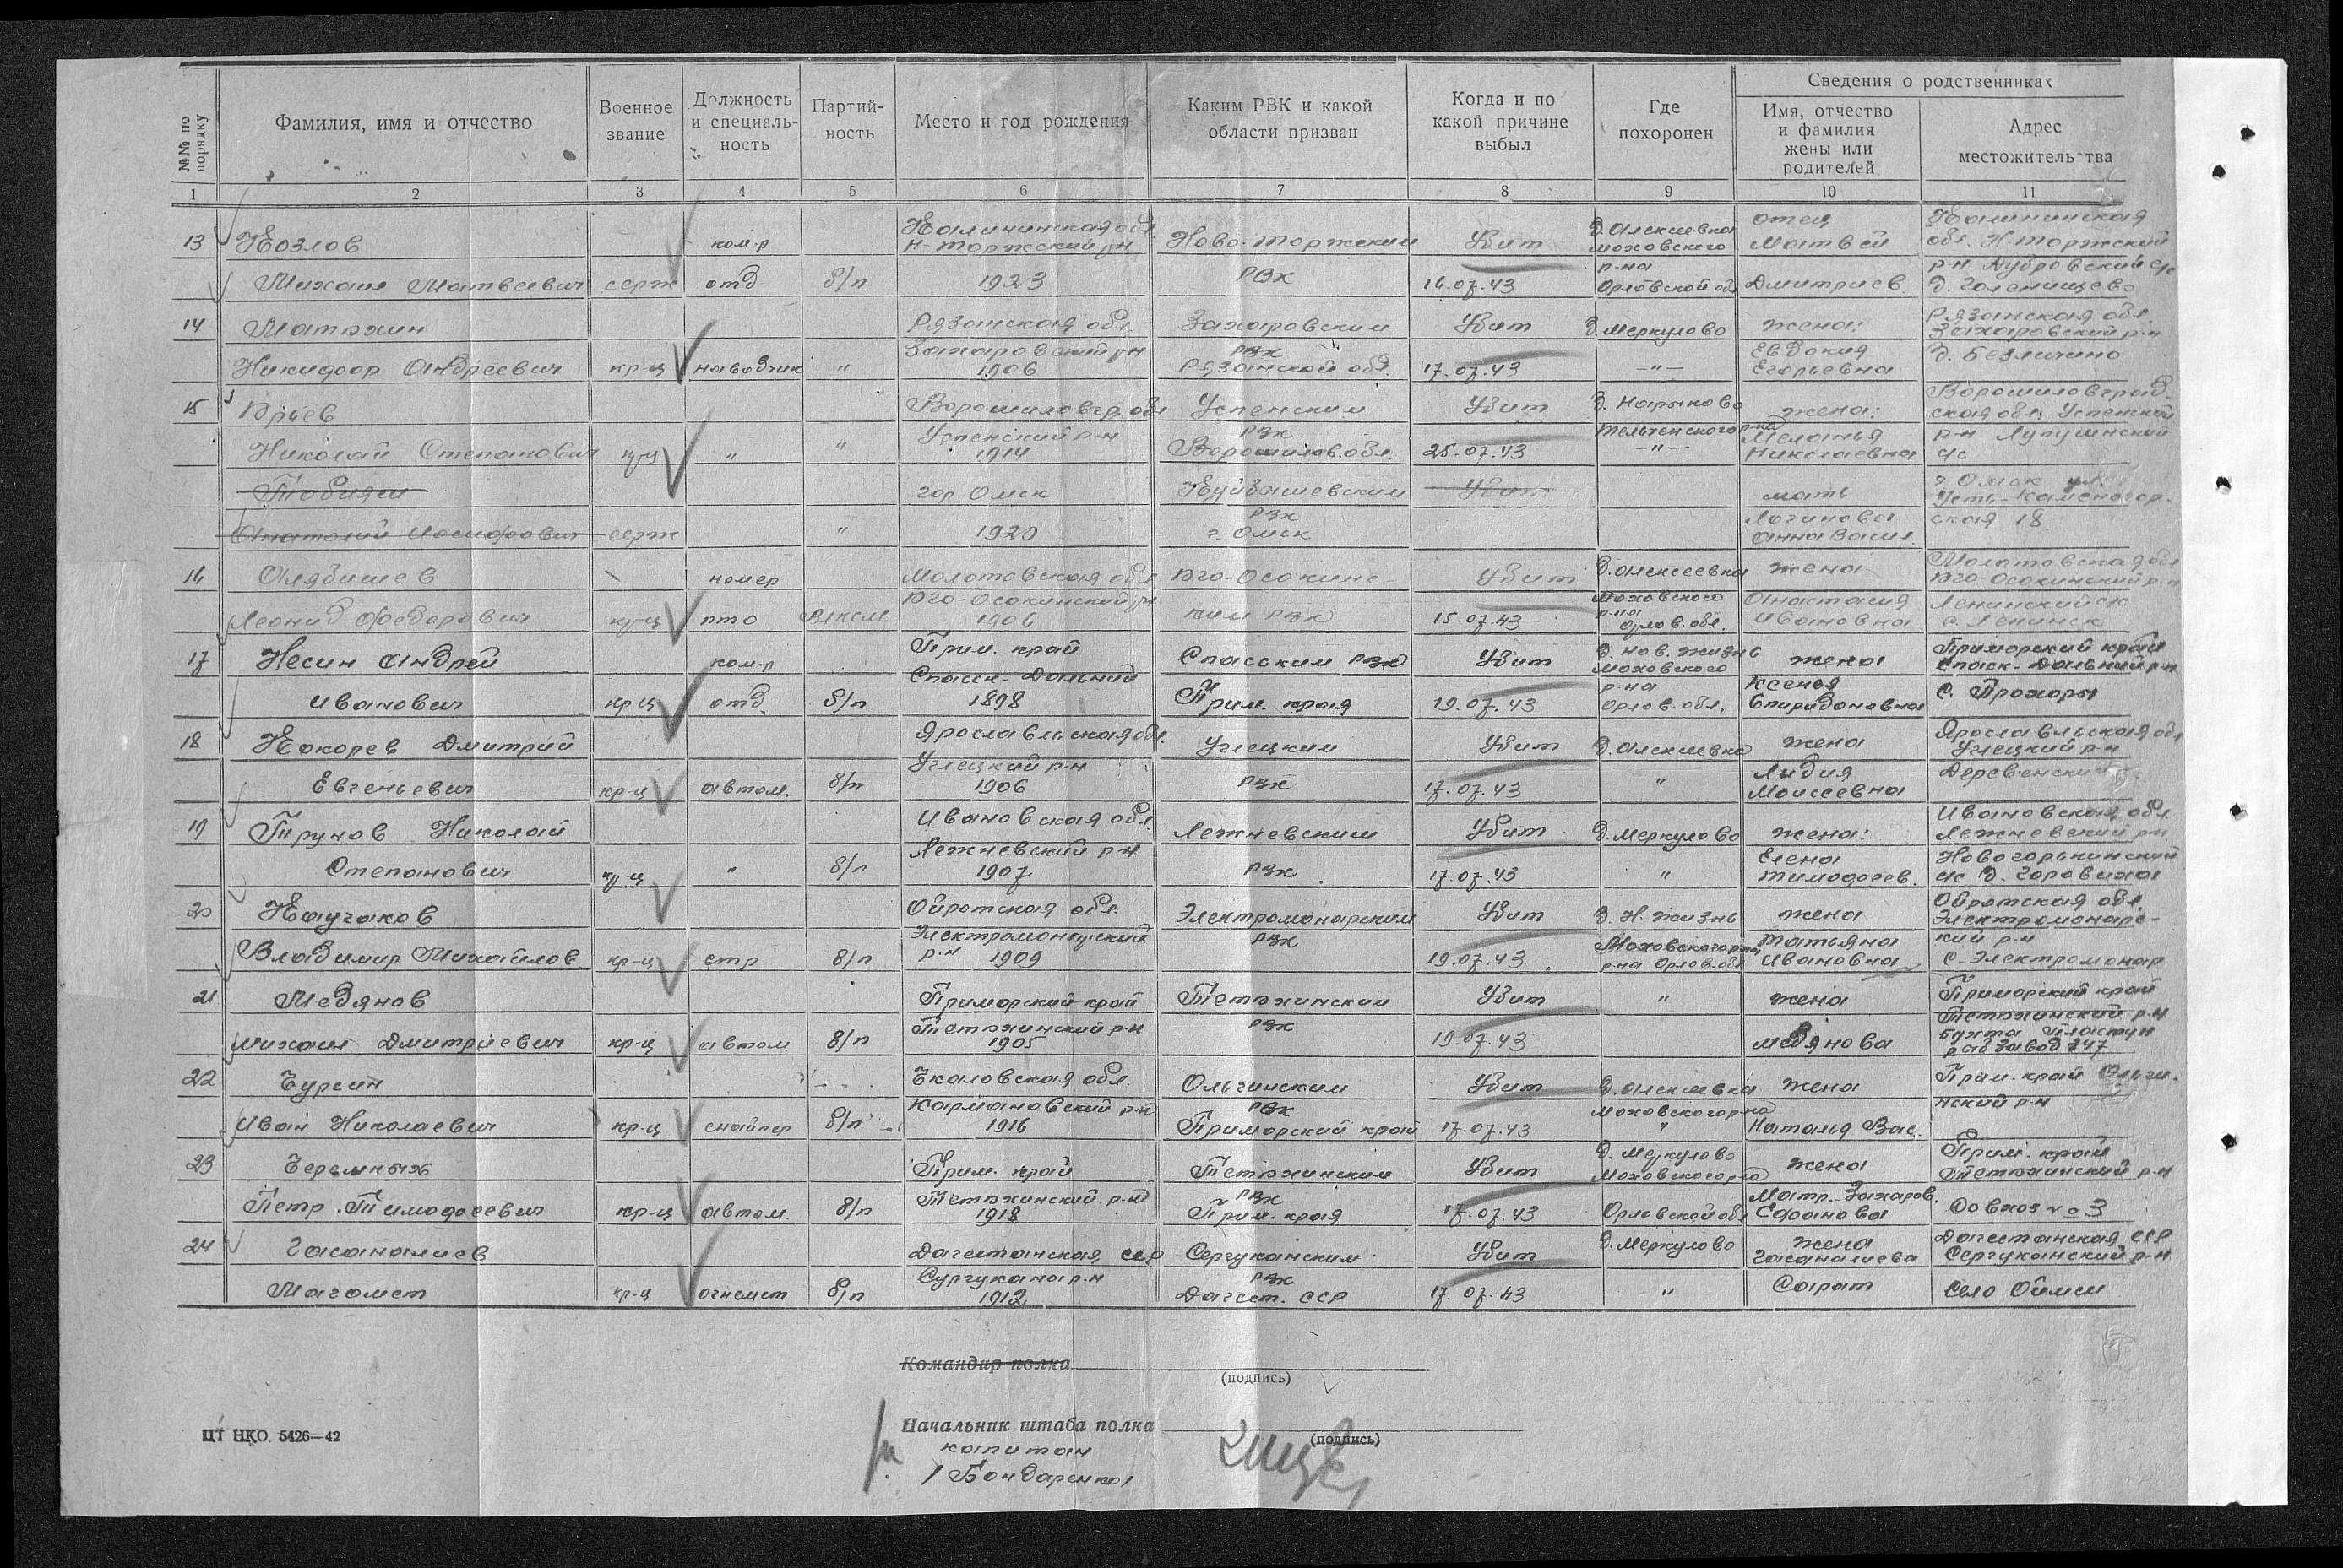 №№ по порядку
Фамилия, имя и отчество
Военное звание
Должность и специаль-ность
Партий-ность
Место и год рождения
Каким РВК и какой области призван
Когда и по какой причине выбыл
Где похоронен
Сведения о родственниках
Имя, отчество и фамилия жены или родителей
Адрес местожительства
1 2 3 4 5 6 7 8 9 10 11
13 Козлов ком-р Калининская обл. Н-Торжский р-н Ново-Торжским Убит д. Алексеевка Моховского отец Матвей Калининская обл. Н-Торжский
Михаил Матвеевич серж отд б/п 1923 РВК 16.07.43 р-на Орловской обл Дмитриев. р-н Дубровский с/с д. Голенищево
14 Матюхин Рязанская обл. Захаровским Убит д. Меркулово жена: Рязанская обл. Захаровский р-н
Никифор Андреевич кр-ц наводчик " Захаровский р-н 1906 РВК Рязанской обл. 17.07.43 -"- Евдокия Егорьевна д. Безлично
15 Юрьев Ворошиловгр. обл Успенским Убит д. Нарыково жена: Ворошиловград-ская обл. Успенский
Николай Степанович кр-ц " " Успенский р-н 1914 РВК Ворошилов. обл. 25.07.43 Тельченского р-на -"- Меланья Николаевна р-н Лутугинский с/с
Товияш гор Омск Куйбышевским Убит мать г. Омск ул. Усть-Каменогор-
Анатолий Иосифович серж " 1920 РВК г. Омск Логинова Анна Васил. ская 18.
16 Алябишев номер Молотовская обл Юго-Осокинс- Убит д. Алексеевка жена Молотовская обл Юго-Осокинский р-н
Леонид Федорович кр-ц пто ВЛКСМ Юго-Осокинский р-н 1906 ким РВК 15.07.43 Моховского р-на Орлов. обл. Анастасия Ивановна Ленинский с/с с. Ленинск
17 Несин Андрей ком-р Прим. край Спасским РВК Убит д. Нов. Жизнь Моховского жена Приморский край Спасск-Дальний р-н
Иванович кр-ц отд. б/п Спасск-Дальний 1898 Прим. края 19.07.43 р-на Орлов. обл. Ксенья Спиридоновна с. Прохоры
18 Кокорев Дмитрий Ярославльская обл. Углецким Убит д. Алексеевка жена Ярославльская обл Углецкий р-н
Евгеньевич кр-ц автом. б/п Углецкий р-н 1906 РВК 17.07.43 " Лидия Моисеевна Деревенский
19 Трунов Николай Ивановская обл. Лежневским Убит д. Меркулово жена: Ивановская обл Лежневский р-н
Степанович кр-ц " б/п Лежневский р-н 1907 РВК 17.07.43 " Елена Тимофеев. Новогорькинский с/с д. Горовиха
20 Каучаков Ойротская обл. Электромонарским Убит д. Н. Жизнь жена Ойротская обл. Электромонарс-
Владимир Михайлов. кр-ц стр б/п Электромонарский р-н 1909 РВК 19.07.43 Моховского р-на р-на Орлов. обл Татьяна Ивановна кий р-н с. Электромонар
21 Медянов Приморский край Тетюхинским Убит " жена Приморский край Тетюхинский р-н
Михаил Дмитриевич кр-ц автом б/п Тетюхинский р-н 1905 РВК 19.07.43 Медянова бухта Пластун раб завод 347
22 Бурсин Чкаловская обл. Ольгинским Убит д. Алексеевка жена Прим. край Ольги-
Иван Николаевич кр-ц снайпер б/п Кармановский р-н 1916 РВК Приморский край 17.07.43 Моховского р-на " Наталья Вас. нский р-н
23 Черемных Прим. край Тетюхинским Убит д. Меркулово Моховского р-на жена Прим. край Тетюхинский р-н
Петр Тимофеевич кр-ц автом. б/п Тетюхинский р-н 1918 РВК Прим. края 17.07.43 Орловской обл Матр. Захаров. Сафанова Совхоз № 3
24 Гасаналиев Дагестанская ССР Сергуканским Убит д. Меркулово жена Гасаналиева Дагестанская ССР Сергуканский р-н
Магомет кр-ц огнемет б/п Сургукана р-н 1912 РВК Дагест. ССР 17.07.43 " Сарат Село Оймси
Командир полка
(подпись)
Начальник штаба полка
(подпись)
капитан
/Бондаренко/
ЦТ НКО 5426—42